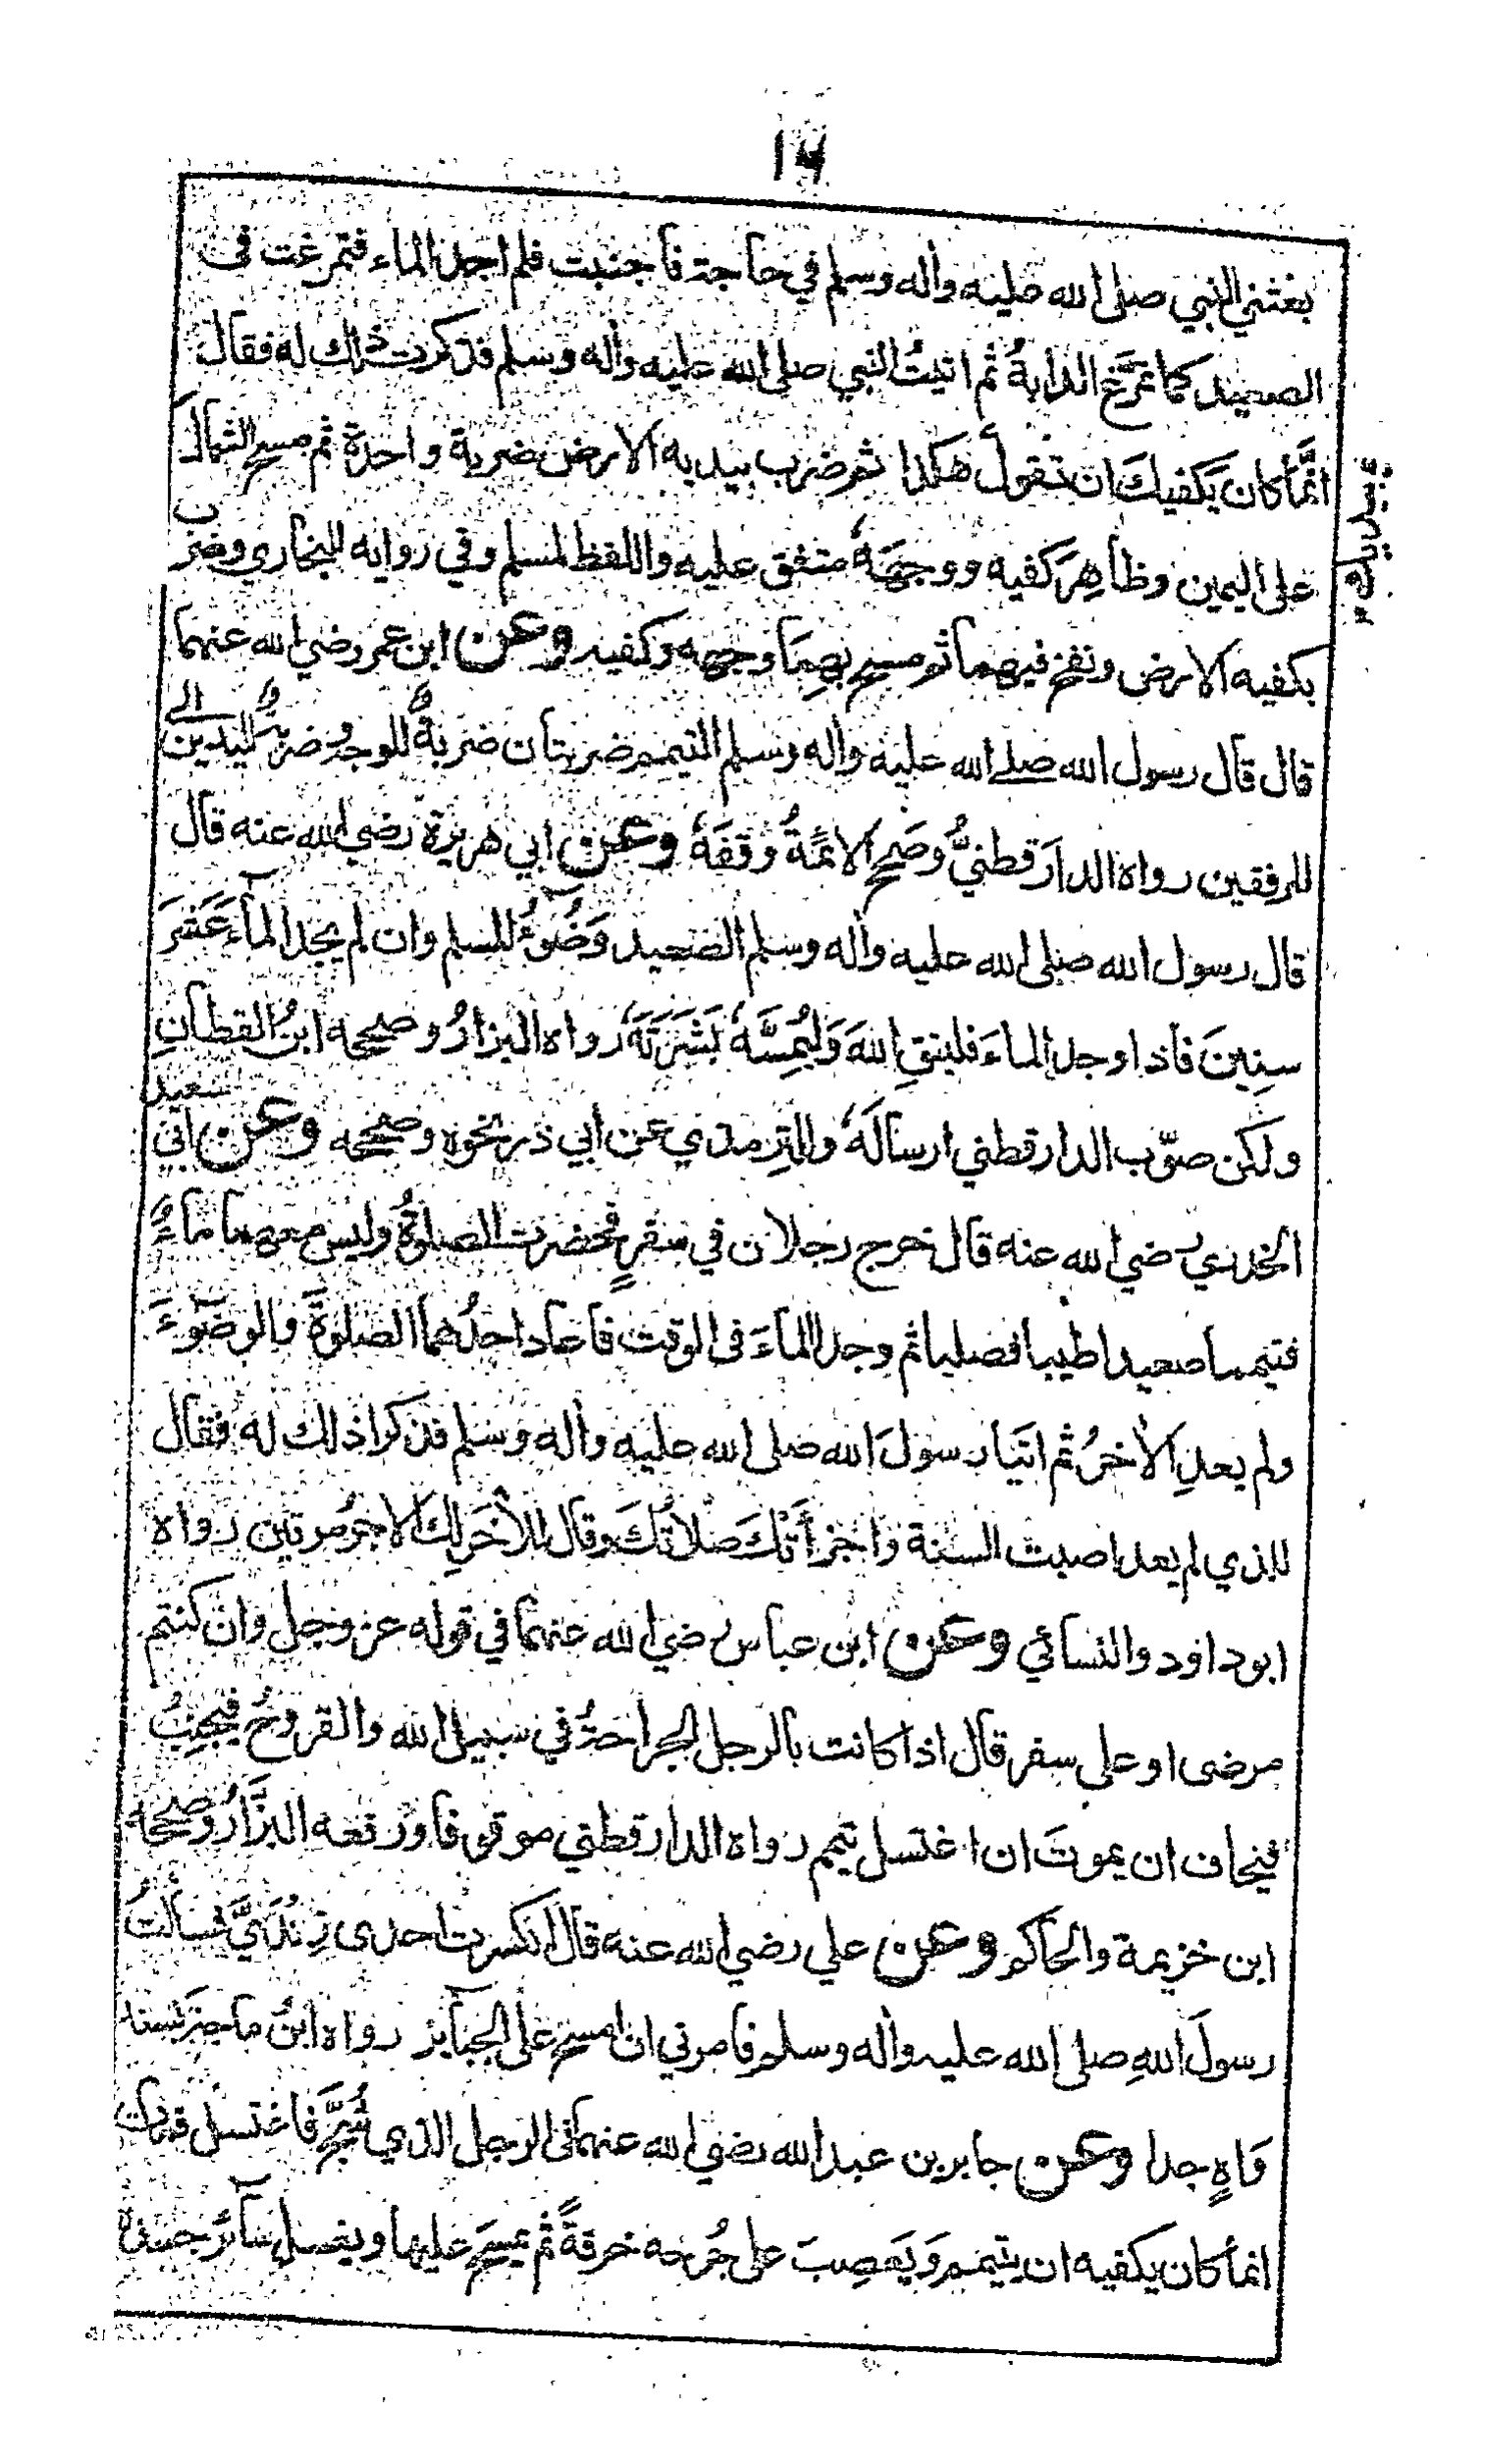 ١٦
بعثني النبي صلى الله عليه وأله وسلم في حاجة فأجنبت فلم اجد الماء فتمرغت فى
الصعيد كما تمرَّغ الدابةُ ثم اتيتُ النبي صلى الله عليه وأله وسلم فذكرت ذلك له فقال
انَّما كان يَكفيكَ ان تقول هكذا ثم ضرب بيديه الارض ضربة واحدة ثم مسح الشمالَ
على اليمين وظاهِرَ كفيه ووجهَهٗ متفق عليه واللفظ لمسلم وفي رواية للبخاري وضرب
بكفيه الارض ونفخ فيهما ثم مسح بهِمَا وجهه وكفيه وعن ابن عمر رضي الله عنهما
قال قال رسول الله صلے الله عليه وأله وسلم التيمم ضربتان ضربةٌ للوجه وضربةٌ لليدين الے
المرفقين رواه الدارَقطنيُّ وصَحح الائمَّةُ وَقفَهٗ وعن ابي هريرة رضي الله عنه قال
قال رسول الله صلى الله عليه وأله وسلم الصعيد وَضُوْءُ المسلم وان لم يجد المآءَ عَشرَ
سنِينَ فأذا وجد الماءَ فليتقِ اللهَ وَليُمِسَّهٗ بَشَرَتَهٗ رواه البزارُ وصححه ابنُ القطانِ
ولكن صوّب الدارقطني ارسالَهٗ وللترمذي عن أبي ذر نحوه وصححه وعن ابي سعيد
الخدري رضي الله عنه قال خرج رجلان في سفرٍ فحضرت الصلوةُ وليس معهما ماءٌ
فتيمما صعيدا طيبا فصليا ثم وجدا الماءَ فى الوقت فاعاد احدُهما الصلوةَ والوضوءَ
ولم يعدِ الأخرُ ثم اتيَا رسولَ الله صلى الله عليه وأله وسلم فذكرا ذلك له فقال
للذي لم يعد اصبت السنة واجزأَتْكَ صَلاتُكَ وقال للأخَرِ لك الاجرُ مرتين رواه
ابوداود والنسائي وعن ابن عباس رضي الله عنهما في قوله عز وجل وان كنتم
مرضى او على سفر قال اذا كانت بالرجل الجراحةُ في سبيل الله والقروحُ فيجنِبُ
فيخاف ان يموتَ ان اغتسل تيمم رواه الدارقطني موقوفا ورفعه البزَّارُ وصححه
ابن خزيمة والحاكم وعن علي رضي الله عنه قال انكسرت احدى زندَيَّ فسألتُ
رسولَ اللهِ صلى الله عليه وأله وسلم فامرني ان امسح على الجبآئر رواه ابنُ ماجة بسند
وَاهٍ جدا وعن جابر بن عبد الله رضي الله عنهما فى الرجل الذي شُجَّ فاغتسل فمات
انما كان يكفيه ان يتيمم وَيَعصِبَ على جُرحه خرقةً ثم يمسَحَ عليها ويغسل سآئر جسده